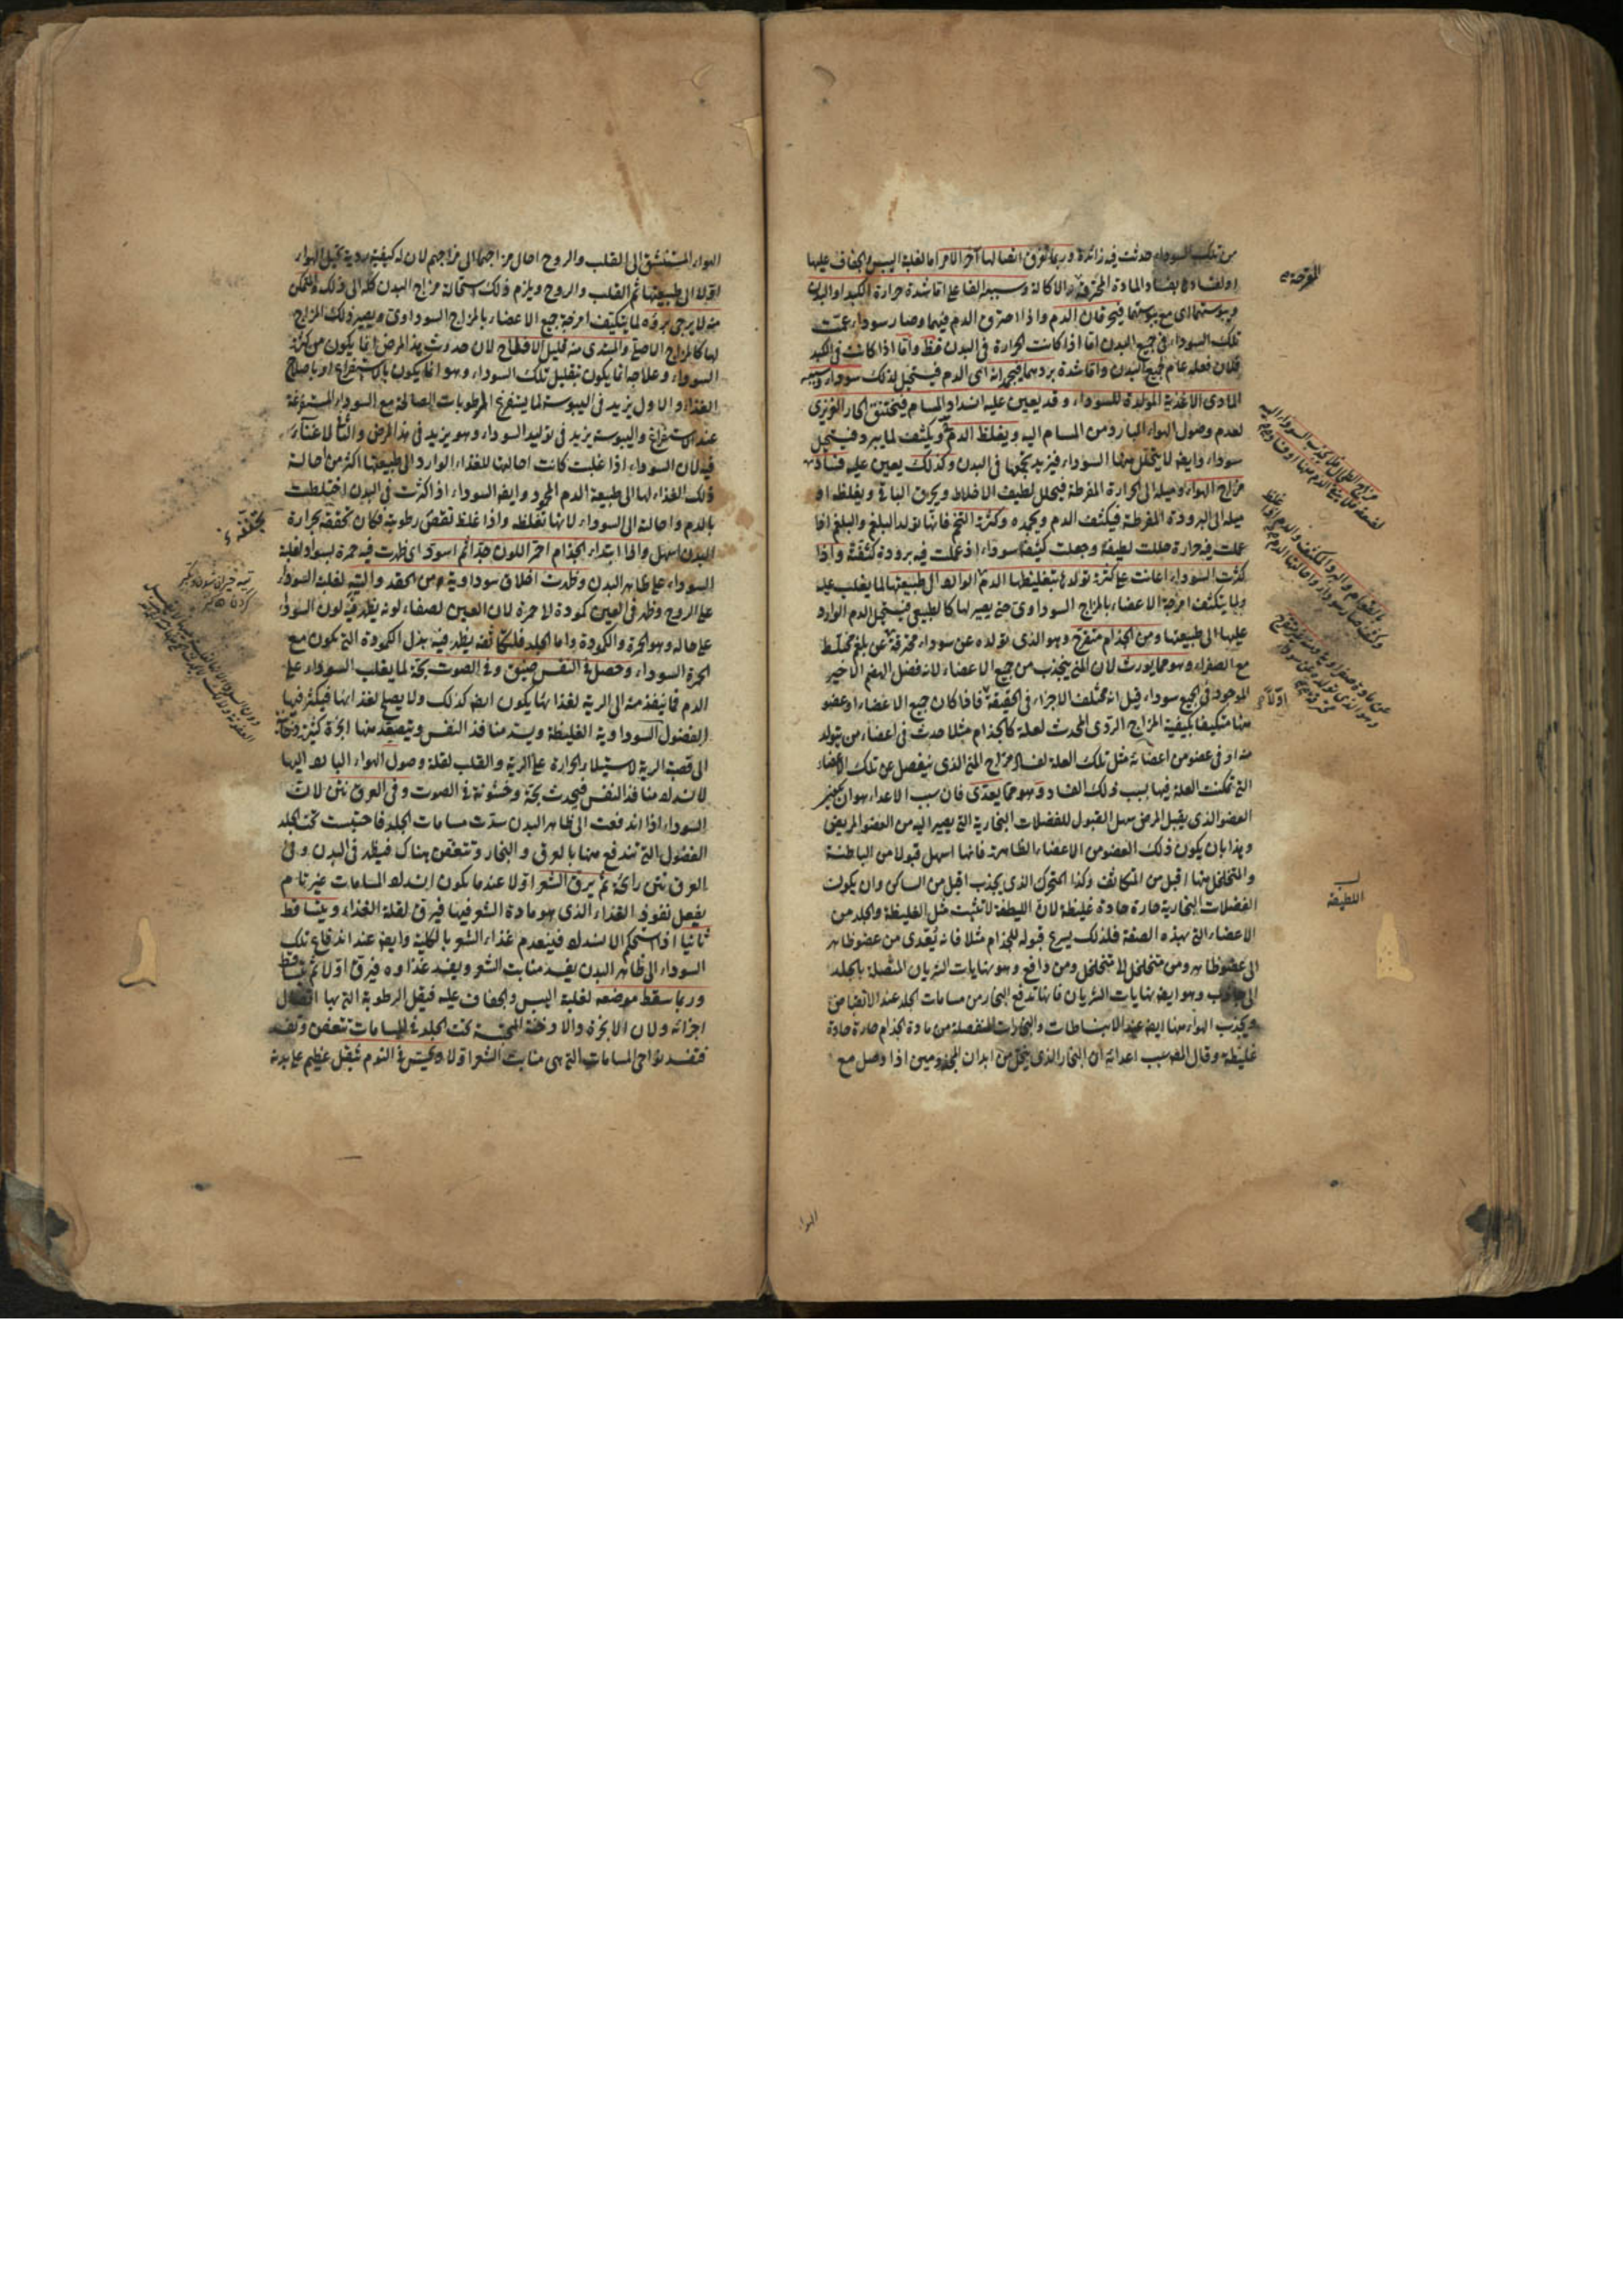 من تلك السوداء حدثت فيه زائدة وربما تفرق اتصالها آخر الامر اما لغلبة اليبس والجفاف عليها
او لفسادها بفساد المادة المحترقة الاكالة وسببه الفاعلى اما شدة حرارة الكبد او البدن
ويبوستهما اى مع يبوستهما فيحرقان الدم واذا احترق الدم فيهما وصار سوداء عمت
تلك السوداء فى جميع البدن اما اذا كانت الحرارة فى البدن فظ واما اذا كانت فى الكبد
فلان فعله عام لجميع البدن واما شدة بردهما فيجمدانه اى الدم فيستحيل لذلك سوداء وسببه
المادى الاغذية المولدة للسوداء وقد يعين عليه انسداد المسام فيختنق الحار الغريزى
لعدم وصول الهواء البارد من المسام اليه ويغلظ الدم ويكثف لما يبرد فيستحيل
سوداء وايضا لا يتحلل منها السوداء فيزيد حجمها فى البدن وكذلك يعين عليه فساد
مزاج الهواء وميله الى الحرارة المفرطة فيحلل لطيف الاخلاط ويحرق الباقى ويغلظ او
ميله الى البرودة المفرطة فيكثف الدم ويجمده وكثرة التخم فانها تولد البلغم والبلغم اذا
عملت فيه حرارة حللت لطيفه وجعلت كثيفه سوداء اذ عملت فيه برودة كثفته واذا
كثرت السوداء اعانت على كثرة تولدها بتغليظها الدم الوارد الى طبيعتها لما يغلب عليه
ولما يتكيف امزجة الاعضاء بالمزاج السوداوى حتى يصير لها كالطبيعى فيستحيل الدم الوارد
عليها الى طبيعتها ومن الجذام متقرح وهو الذى تولده عن سوداء محترقة عن بلغم مختلط
مع الصفراء وهو مما يورث لان المنى ينجذب من جميع الاعضاء لانه فضل الهضم الاخير
الموجود فى الجميع سوداء قيل انه مختلف الاجزاء فى الحقيقة فاذا كان جميع الاعضاء او عضو
منها متكيفا بكيفية المزاج الردى المحدث لعلة كالجذام مثلا حدث فى اعضاء من يتولد
منه او فى عضو من اعضائه مثل تلك العلة لفساد مزاج المنى الذى ينفصل عن تلك الاعضاء
التى تمكنت العلة فيها بسبب ذلك الفساد وهو مما يعدى فان سبب الاعداء هو ان يكون
العضو الذى يقبل المرض سهل القبول للفضلات البخارية التى يصير اليه من العضو المريض
وهذا بان يكون ذلك العضو من الاعضاء الظاهرة فانها اسهل قبولا من الباطنة
والمتخلخل منها اقبل من المتكاثف وكذا المتحرك الذى يجذب اقبل من الساكن وان يكون
الفضلات البخارية حارة حادة غليظة لان اللطيفة لا تثبت مثل الغليظة والجلد من
الاعضاء التى بهذه الصفة فلذلك يسرع قبوله للجذام مثلا فانه يتعدى من عضو ظاهر
الى عضو ظاهر ومن متخلخل الى متخلخل ومن دافع وهو نهايات الشريان المتصلة بالجلد
الى جاذب وهو ايضا نهايات الشريان فانها تدفع البخار من مسامات الجلد عند الانقباض
ويجذب الهواء منها ايضا عند الانبساطات والبخارات المنفصلة من مادة الجذام حارة حادة
غليظة وقال المص سبب اعدائه ان البخار الذى يتحلل من ابدان المجذومين اذا وصل مع
اللطيفة
اولا
الهواء
الهواء المستنشق الى القلب والروح احال مزاجهما الى مزاجهم لان له كيفية ردية تحيل الهواء
اولا الى طبيعتها ثم القلب والروح ويلزم ذلك استحالة مزاج البدن كله الى ذلك والمتمكن
منه لا يرجى برؤه لما يتكيف امزجة جميع الاعضاء بالمزاج السوداوى ويصير ذلك المزاج
لها كالمزاج الاصلى والمبتدى منه قليل الافلاح لان حدوث هذا المرض انما يكون من كثرة
السوداء وعلاجه انما يكون بتقليل تلك السوداء وهو انما يكون بالاستفراغ او باصلاح
الغذاء والاول يزيد فى اليبوسة لما يستفرغ الرطوبات الصالحة مع السوداء المستفرغة
عند الاستفراغ واليبوسة يزيد فى توليد السوداء وهو يزيد فى هذا المرض والثانى لا غناء
فيه لان السوداء اذا غلبت كانت احالتها للغذاء الوارد الى طبيعتها اكثر من احالة
ذلك الغذاء لها الى طبيعة الدم المحمود وايضا السوداء اذا كثرت فى البدن اختلطت
بالدم واحالته الى السوداء لانها تغلظه واذا غلظ نقص رطوبته فكان تجفيفه بحرارة
البدن اسهل واذا ابتداء الجذام احمر اللون جدا ثم اسود اى ظهرت فيه حمرة بسواد لغلبة
السوداء على ظاهر البدن وظهرت اخلاق سوداوية من الحقد والتيه لغلبة السوداء
على الروح وظهر فى العين كمودة الى حمرة لان العين لصفاء لونه يظهر فيه لون السوداء
على حاله وهو الحمرة والكمودة واما الجلد فلكثافته يظهر فيه بدل الكمودة التى يكون مع
الحمرة السوداء وحصل فى النفس ضيق وفى الصوت بحة لما يغلب السوداء على
الدم فما ينفذ منه الى الرية لغذائها يكون ايضا كذلك ولا يصلح لغذائها فيكثر فيها
الفضول السوداوية الغليظة ويسد منافذ النفس ويتصعد منها ابخرة كثيرة دخانية
الى قصبة الرية لاستيلاء الحرارة على الرية والقلب لقلة وصول الهواء البارد اليها
لانسداد منافذ النفس فيحدث بحة وخشونة فى الصوت وفى العرق نتن لان
السوداء اذا اندفعت الى ظاهر البدن سدت مسامات الجلد فاحتبست تحت الجلد
الفضول التى تندفع منها بالعرق والبخار وتتعفن هناك فيظهر فى البدن وفى
العرق نتن رائحة ثم يرق الشعر اولا عند ما يكون انسداد المسامات غير تام
بفعل نفوذ الغذاء الذى هو مادة الشعر فيها فيرق لقلة الغذاء ويتساقط
ثانيا اذا استحكم الانسداد فينعدم غذاء الشعر بالكلية وايضا عند اندفاع تلك
السوداء الى ظاهر البدن يفسد منابت الشعر ويفسد غذاوه فيرق اولا ثم يتساقط
وربما سقط موضعه لغلبة اليبس والجفاف عليه فيقل الرطوبة التى بها اتصال
اجزائه ولان الابخرة والادخنة المحتبسة تحت الجلد فى المسامات تتعفن وتفسد
فتفسد نواحى المسامات التى هى منابت الشعر اولا ويحس فى النوم بثقل عظيم على بدنه